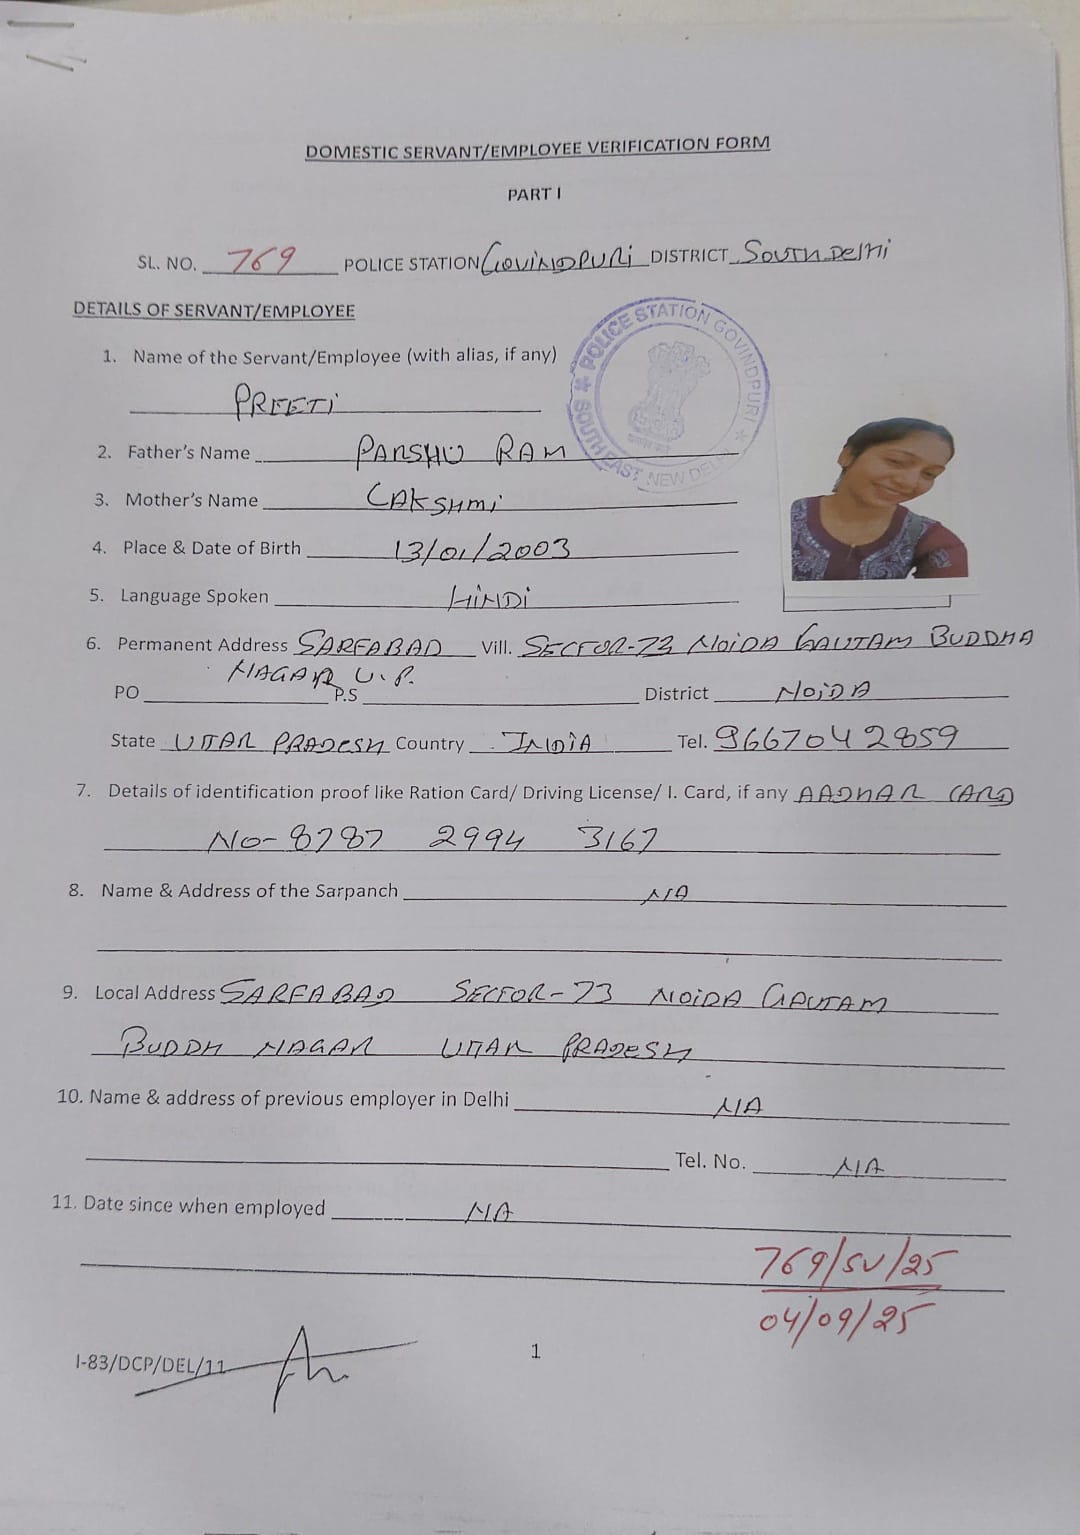 DOMESTIC SERVANT/EMPLOYEE VERIFICATION FORM
PART I
SL. NO. 769 POLICE STATION GOVINDPURI DISTRICT SOUTH DELHI
DETAILS OF SERVANT/EMPLOYEE
POLICE STATION GOVINDPURI
SOUTH EAST NEW DELHI
1. Name of the Servant/Employee (with alias, if any)
PREETI
2. Father's Name PARSHU RAM
3. Mother's Name LAKSHMI
4. Place & Date of Birth 13/01/2003
5. Language Spoken HINDI
6. Permanent Address SARFABAD Vill. SECTOR-73 NOIDA GAUTAM BUDDHA
NAGAR U.P.
PO P.S District NOIDA
State UTTAR PRADESH Country INDIA Tel. 9667042859
7. Details of identification proof like Ration Card/ Driving License/ I. Card, if any AADHAR CARD
NO- 8787 2994 3167
8. Name & Address of the Sarpanch NA
9. Local Address SARFABAD SECTOR-73 NOIDA GAUTAM
BUDDH NAGAR UTTAR PRADESH
10. Name & address of previous employer in Delhi NA
Tel. No. NA
11. Date since when employed NA
769/SV/25
04/09/25
I-83/DCP/DEL/11
1